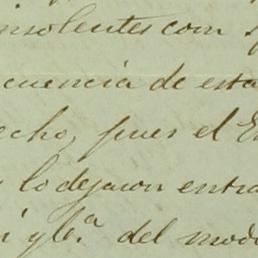 insolentes com
cuencia de esta
echo, pues el E
lo dejaron entra
del modo